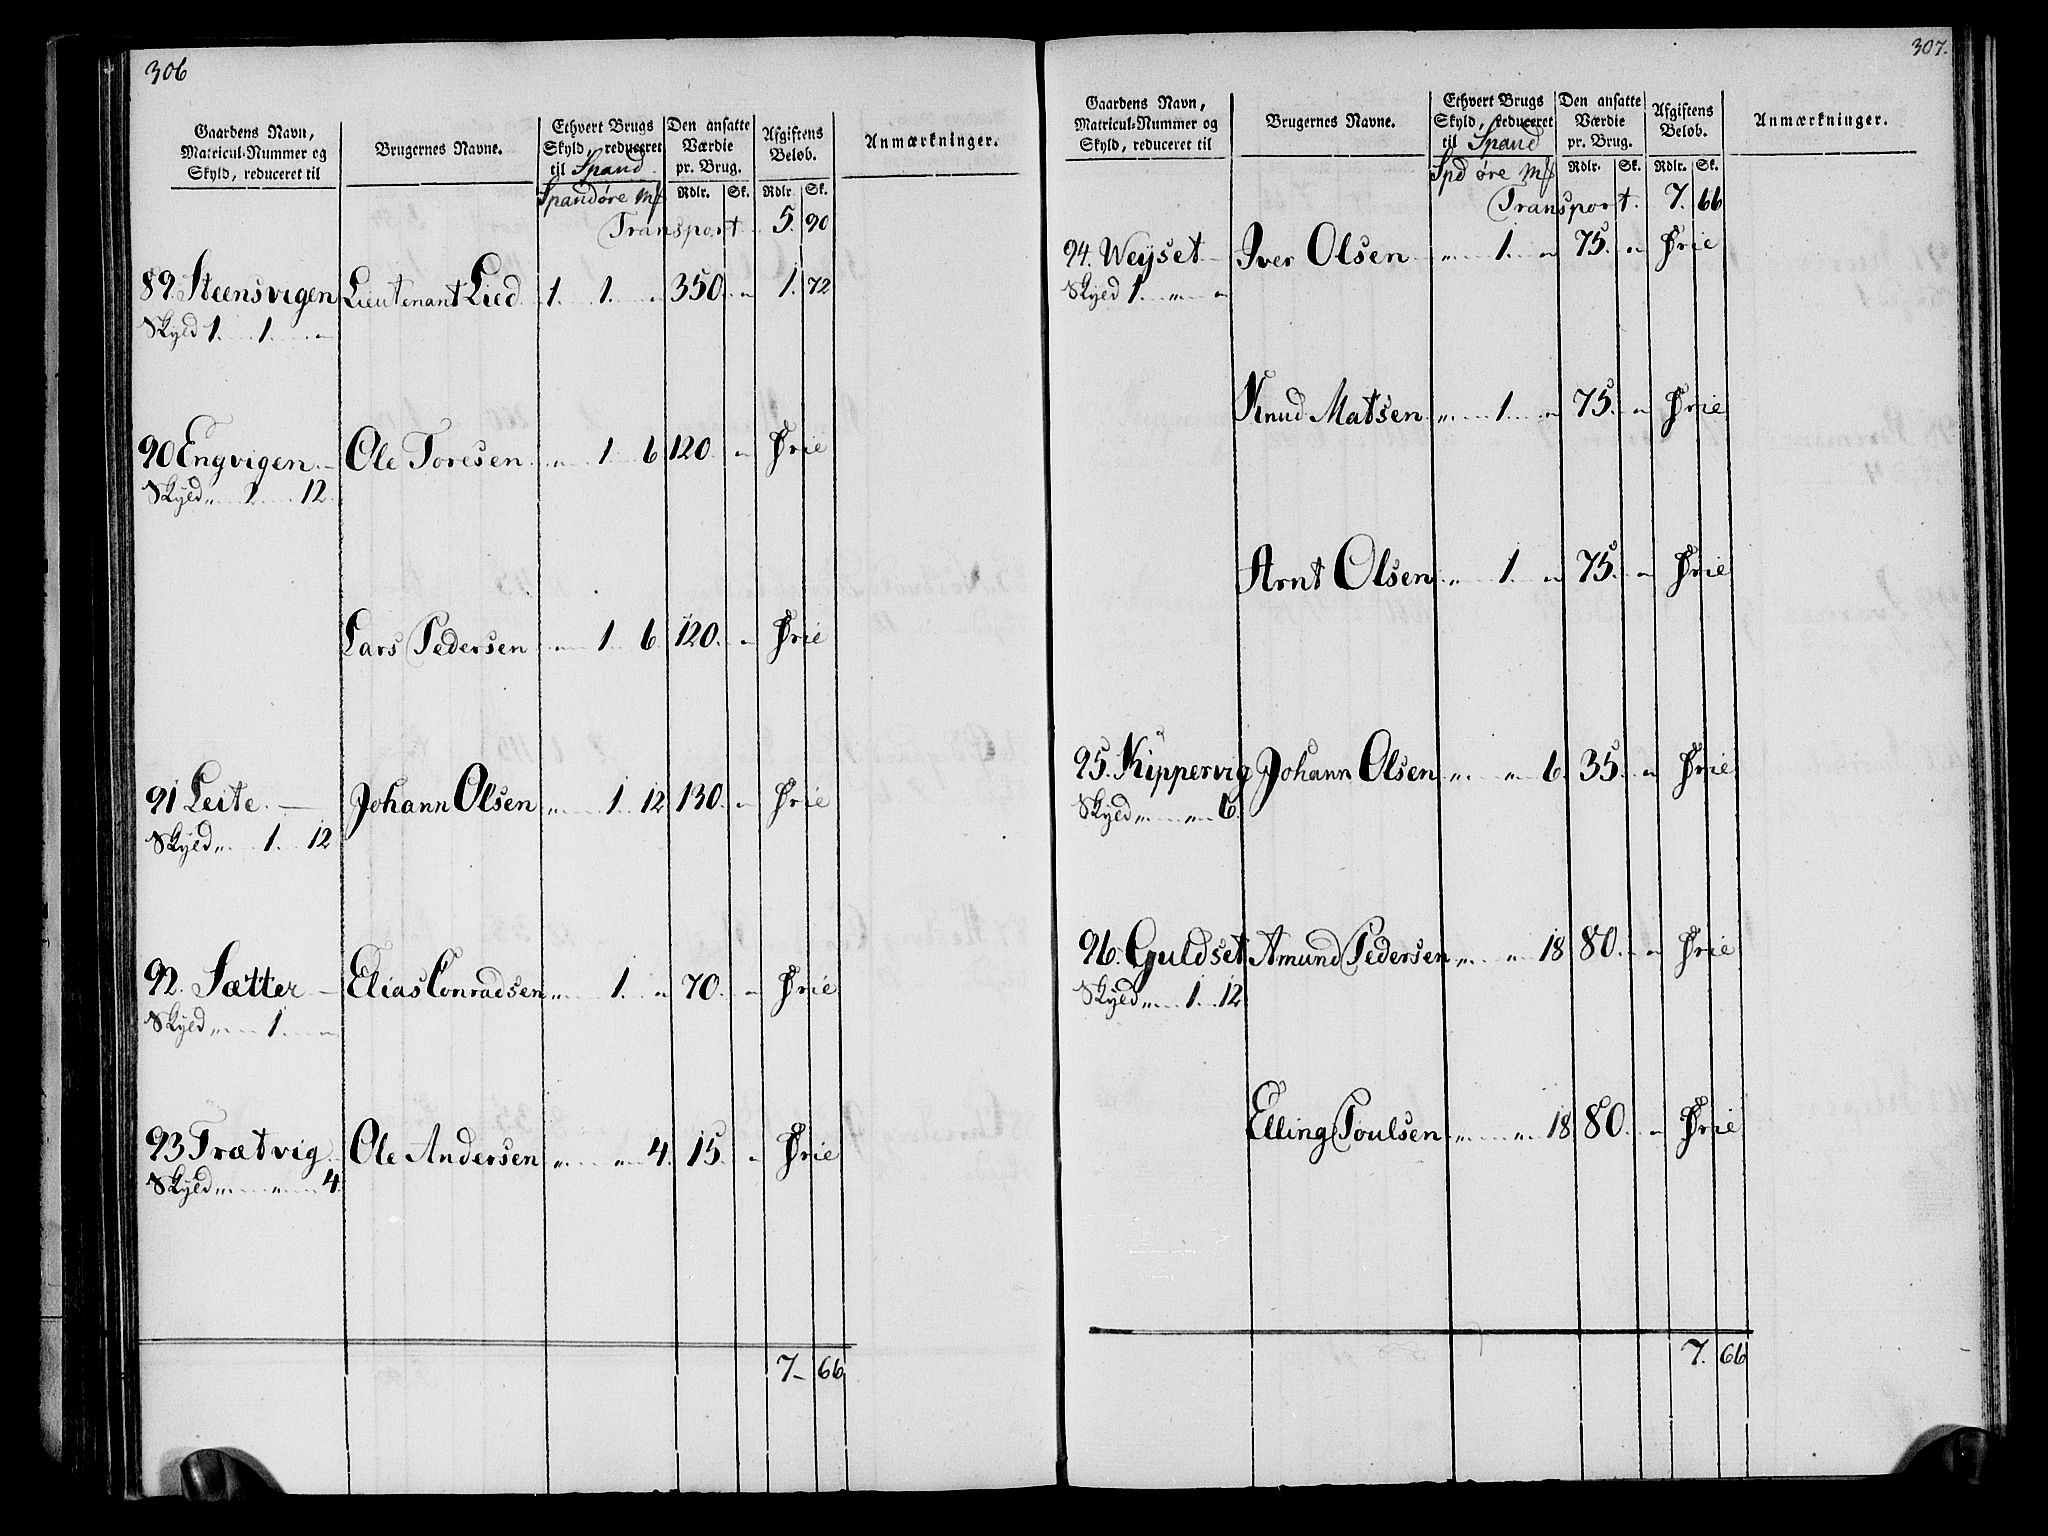 306
Gaardens Navn, Matricul-Nummer og Skyld, reduceret til
Brugernes Navne.
Ethvert Brugs Skyld, reduceret til Spand
Den ansatte Værdie pr. Brug.
Afgiftens Beløb.
Anmærkninger.
Spand øre mf Rdlr. Sk. Rdlr. Sk.
Transport 5. 90
89. Steensvigen Lieutenant Lied 1. 1. " 350. " 1. 72
Skyld 1. 1. "
90 Engvigen Ole Toresen " 1 6 120 " Frie
Skyld " 2 12
Lars Pedersen " 1 6 120. " Frie
91 Leite. Johann Olsen " 1 12 130 " Frie
Skyld " 1. 12
92. Sætter Elias Conradsen " 1. " 70. " Frie
Skyld " 1. "
93 Trætvig Ole Andersen " " 4. 15. " Frie
Skyld " " 4
7 66
307.
Gaardens Navn, Matricul-Nummer og Skyld, reduceret til
Brugernes Navne.
Ethvert Brugs Skyld, reduceret til Spand
Den ansatte Værdie pr. Brug.
Afgiftens Beløb.
Anmærkninger.
Spd øre mf Rdlr. Sk. Rdlr. Sk.
Transport. 7. 66
94. Weyset Iver Olsen " 1. " 75. " Frie
Skyld 1. " "
Knud Matsen " 1. " 75. " Frie
Arnt Olsen " 1. " 75. " Frie
95. Kippervig Johann Olsen " " 6. 35. " Frie
Skyld " " 6.
96. Guldset Amund Pedersen " " 18 80. " Frie
Skyld " 1. 12
Elling Poulsen " " 18 80. " Frie
7. 66